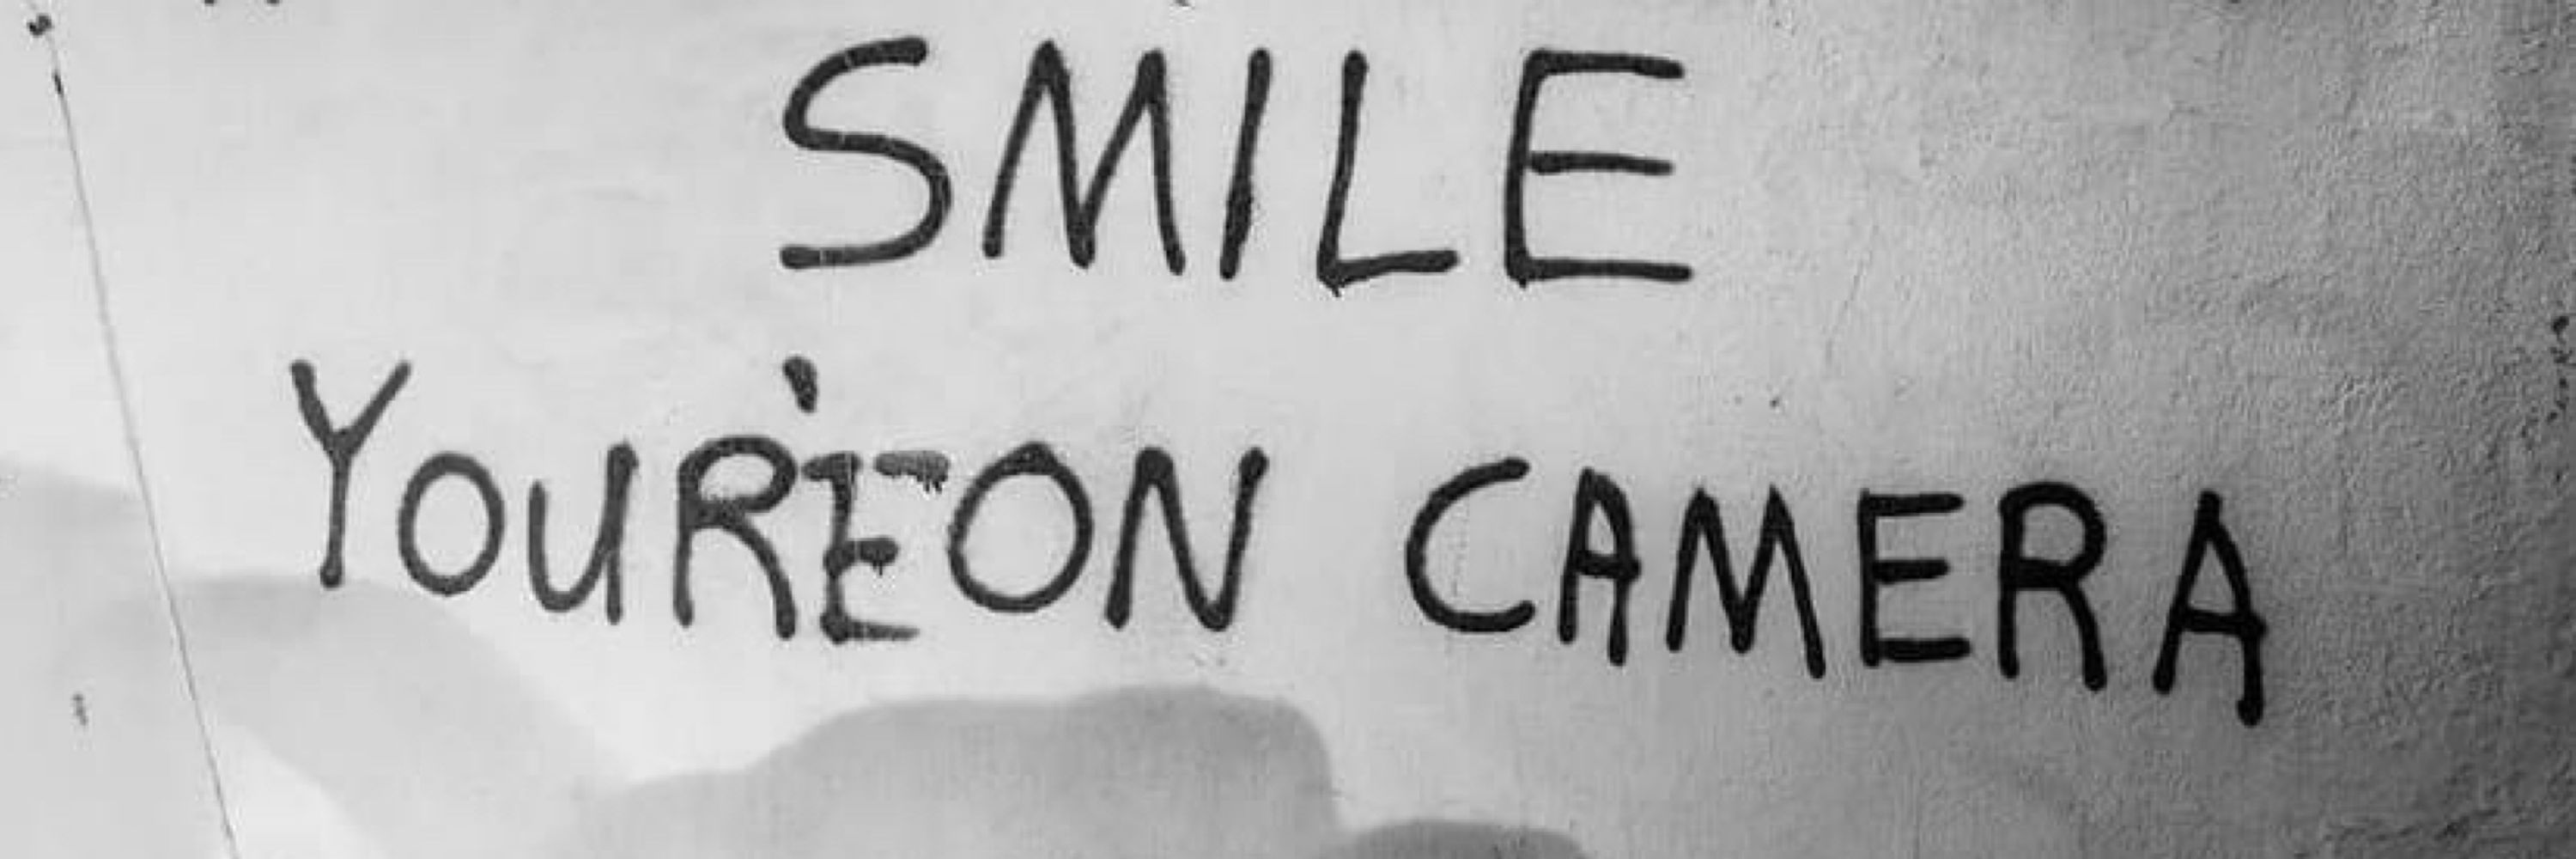 SMILE
YOUR'E ON CAMERA